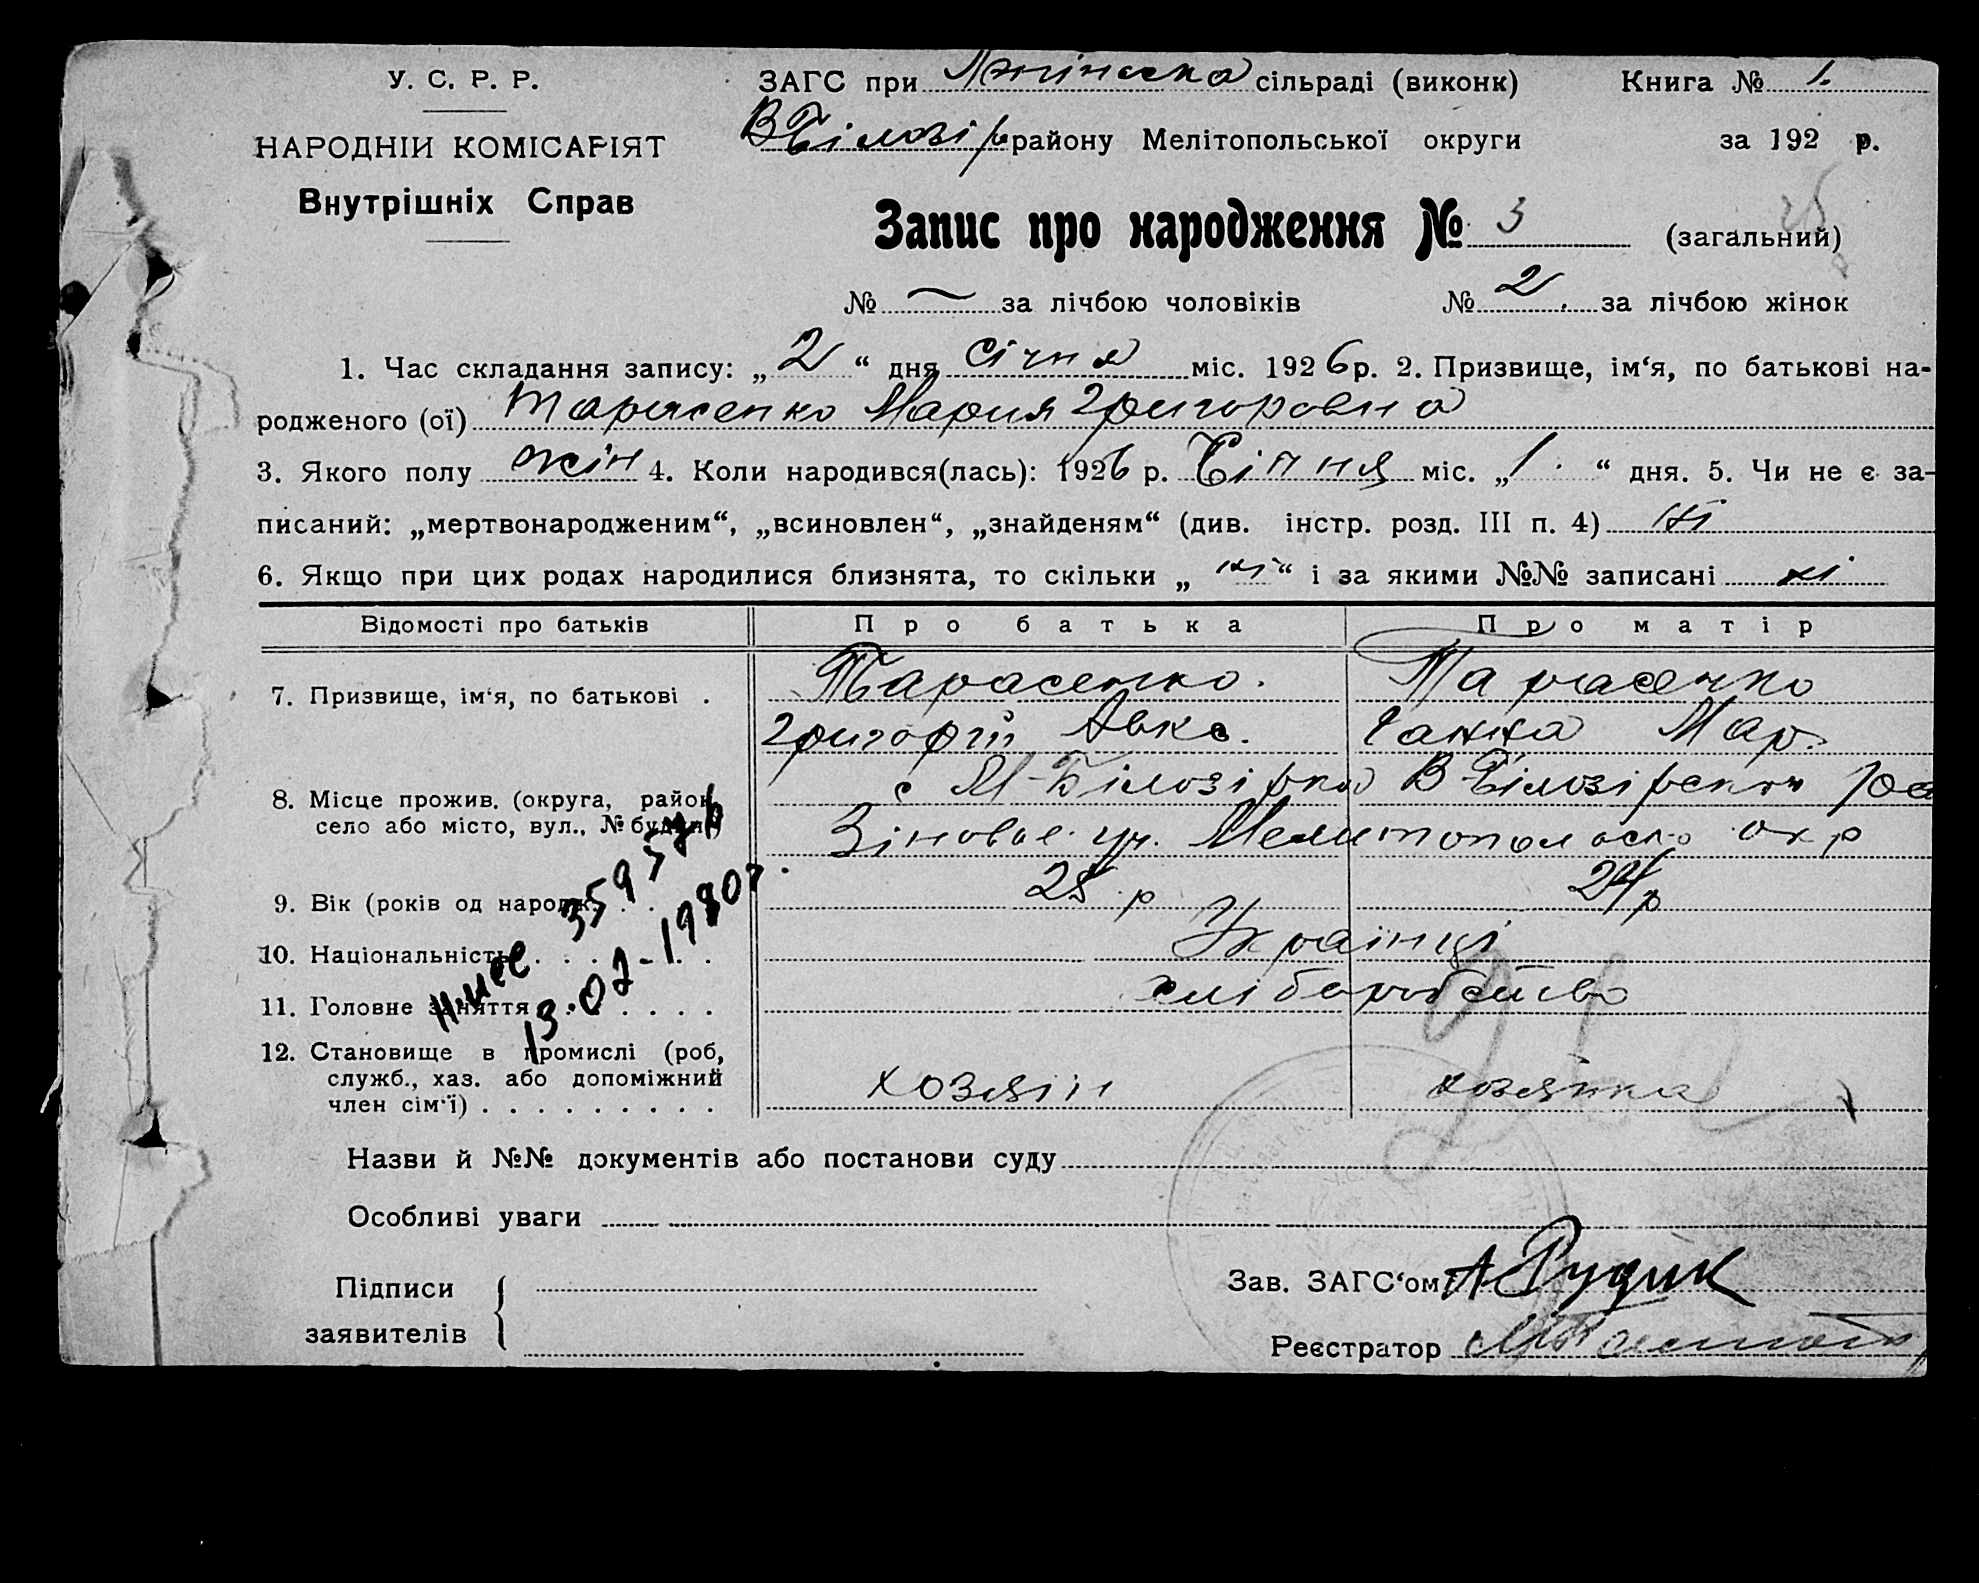 У. С. Р. Р.
НАРОДНІЙ КОМІСАРІЯТ
Внутрішніх Справ
ЗАГС при сільраді (виконк) Книга № 1.
В Білозір району Мелітопольської округи за 192 р.
Запис про народження № 3 (загальний)
№ — за лічбою чоловіків № 2. за лічбою жінок
1. Час складання запису: „ 2 “ дня Січня міс. 1926 р. 2. Призвище, ім‘я, по батькові на-
родженого (ої) Тарасенко Мария Григоровна
3. Якого полу жін 4. Коли народився(лась): 1926 р. Січня міс. „ 1. “ дня. 5. Чи не є за-
писаний: „мертвонародженим“, „всиновлен“, „знайденям“ (див. інстр. розд. III п. 4) ні
6. Якщо при цих родах народилися близнята, то скільки „ ні “ і за якими №№ записані ні
Відомості про батьків Про батька Про матір
7. Призвище, ім‘я, по батькові . Тарасенко. Тарасенко
Григорій Авкс. Ганна Мар.
8. Місце прожив. (округа, район, село або місто, вул., № будин.) с М-Білозірка В-Білозірской ра
Зіновье. уч. Мелитопольско окр
9. Вік (років од народж. . . 25 р 24 р
10. Національність . . . . . Українці
11. Головне заняття . . . . . хліборобство
12. Становище в промислі (роб,
служб., хаз. або допоміжний
член сім‘ї) . . . . . . . . . хозяїн хозяйка
359576
13.02-1980г.
Назви й №№ документів або постанови суду
Особливі уваги
Підписи
заявителів
Зав. ЗАГС‘ом А Рудик
Реєстратор